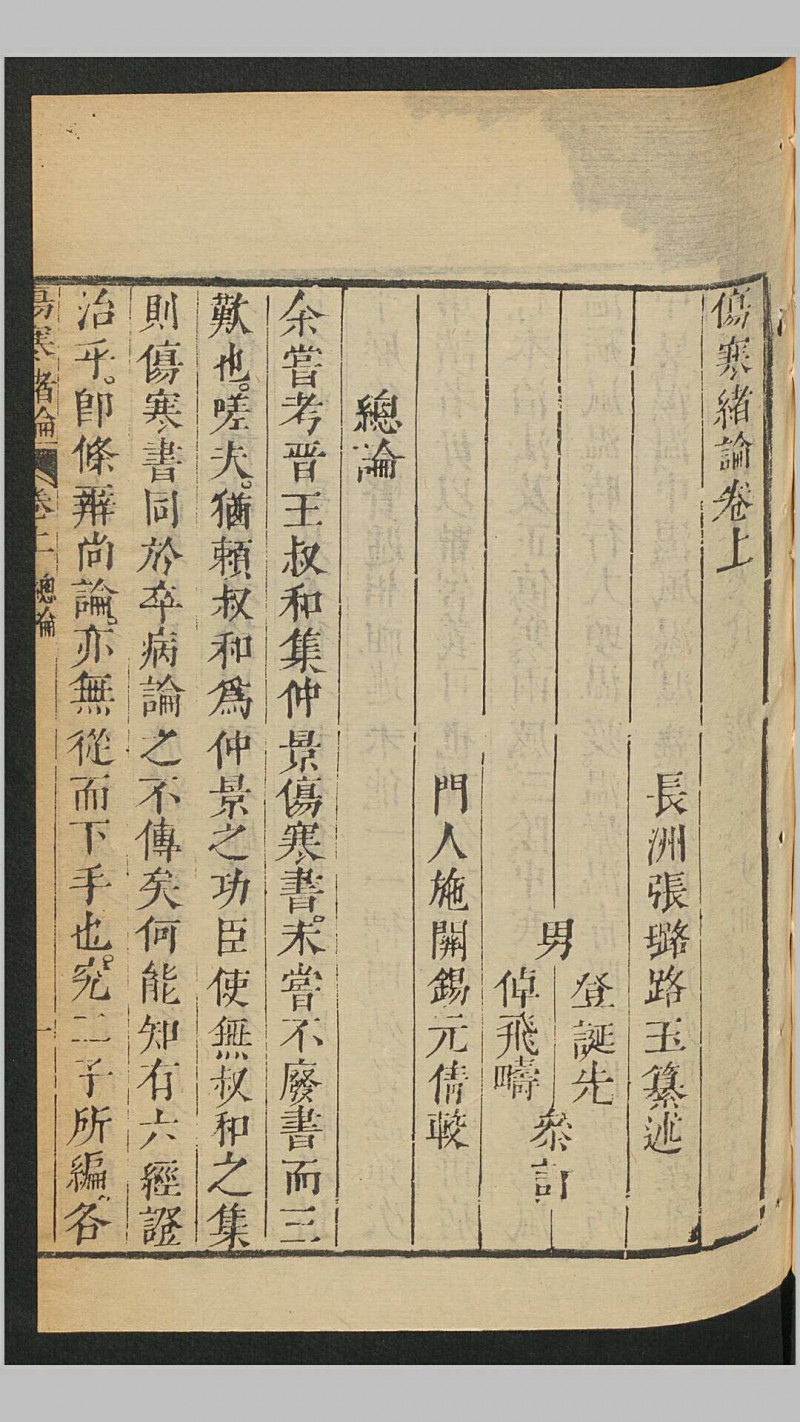 傷寒緒論卷上
長洲張璐路玉纂述
男
登誕先
倬飛疇
參訂
門人施開錫元倩較
總論
余嘗考晋王叔和集仲景傷寒書。未嘗不廢書而三
歎也。嗟夫。猶賴叔和爲仲景之功臣使無叔和之集
則傷寒書同於卒病論之不傳矣何能知有六經證
治乎。卽條辨尚論。亦無從而下手也。究二子所編。各
傷寒緒論 卷上 總論 一